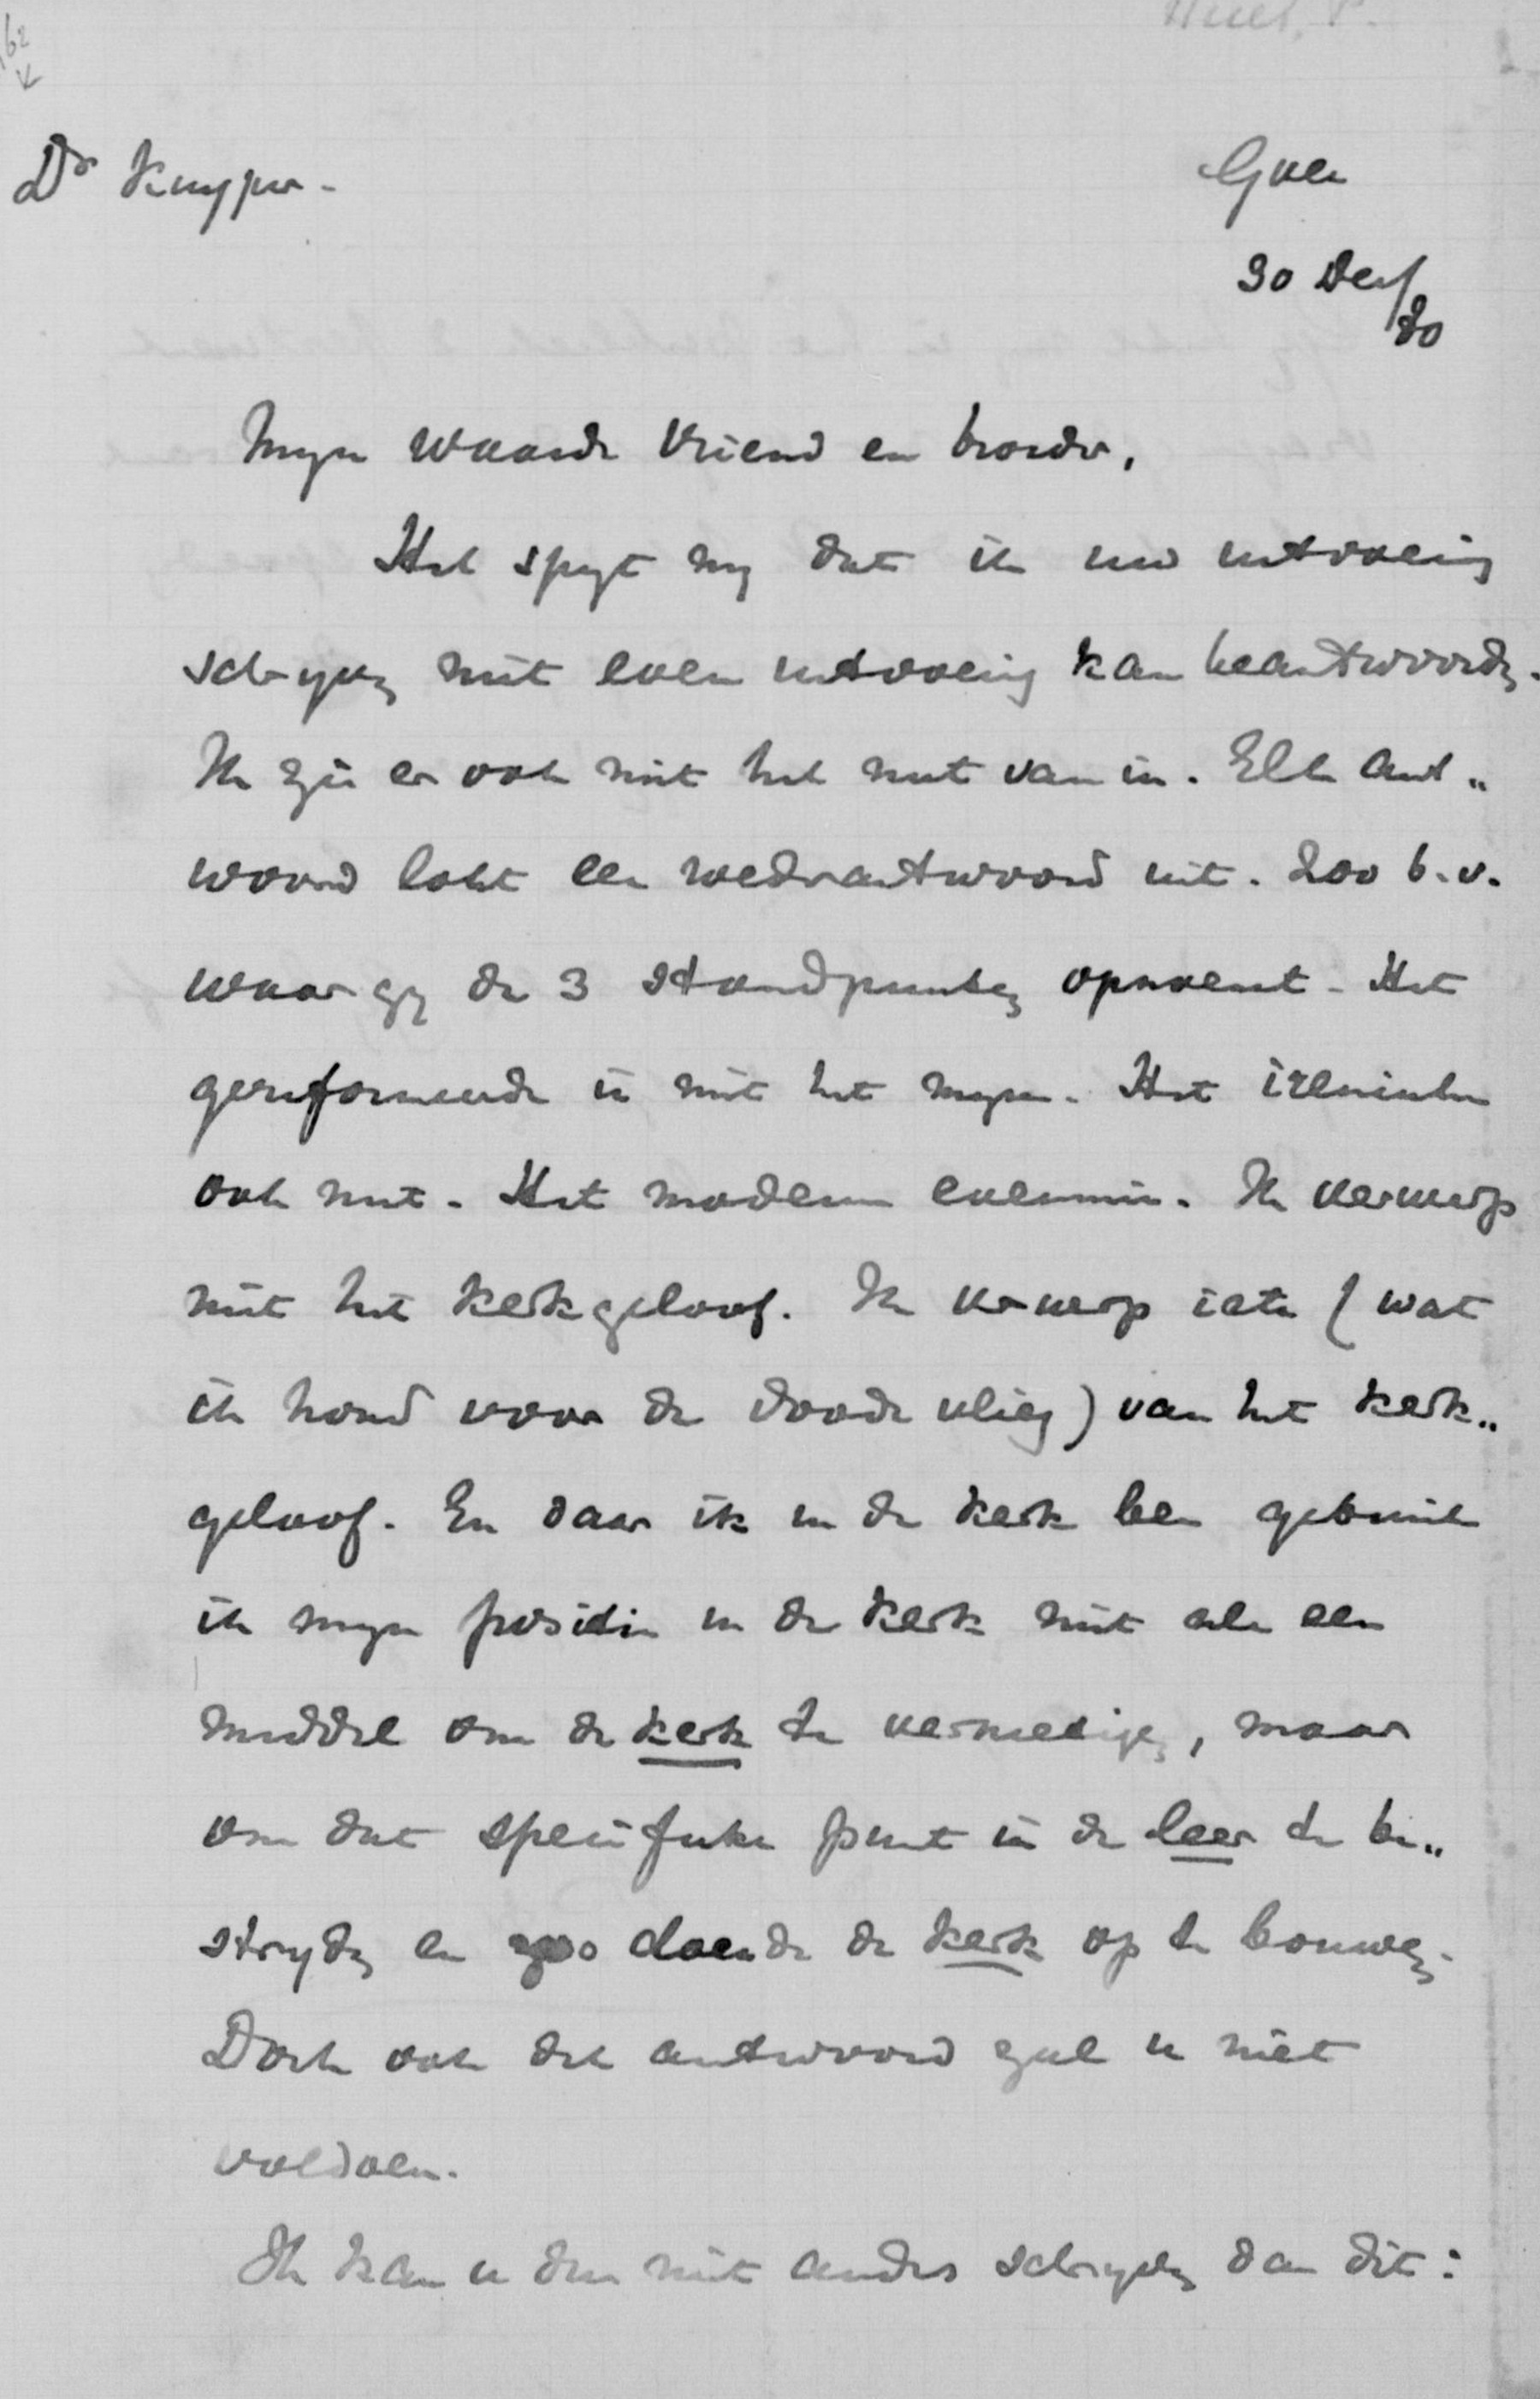 Dr Kuyper.
Goes
30 Dec/80
Myn waarde vriend en broeder,
Het spyt my dat ik uw uitvoerig
schryven niet even uitvoerig kan beantwoorden.
Ik zie er ook niet het nut van in. Elk ant„
woord lokt een wederantwoord uit. Zoo b.v.
waar gy de 3 standpunten opnoemt. Het
gereformeerde is niet het myne. Het irenische
ook niet. Het moderne evenmin. Ik verwerp
niet het kerkgeloof. Ik verwerp iets (wat
ik houd voor de doode vlieg) van het kerk„
geloof. En daar ik in de kerk ben gebruik
ik myn positie in de kerk niet als een
middel om de kerk te vernietigen, maar
om dat specifieke punt in de leer te be„
stryden en zoo doende de kerk op te bouwen.
Doch ook dit antwoord zal u niet
voldoen.
Ik kan u dus niet anders schryven dan dit: